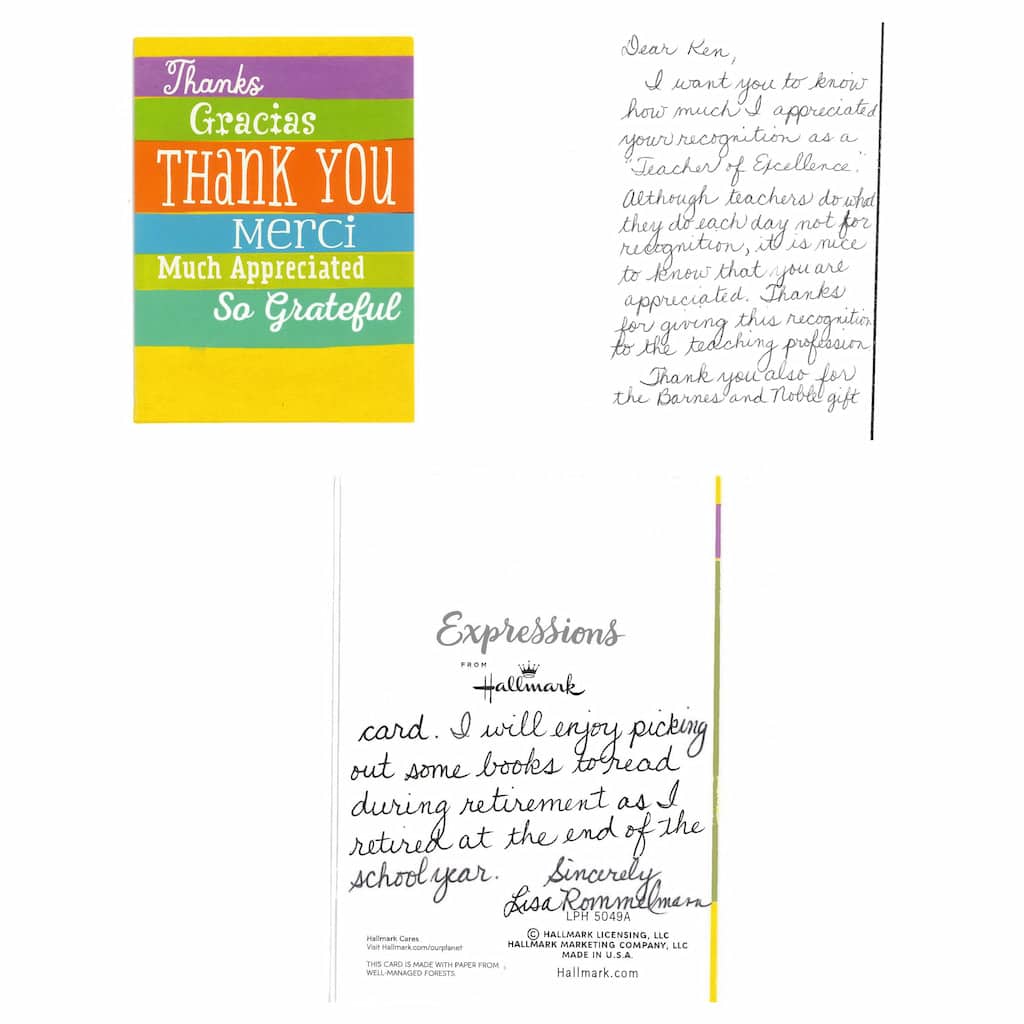 Thanks
Gracias
THANK YOU
Merci
Much Appreciated
So Grateful
Dear Ken,
I want you to know
how much I appreciated
your recognition as a
"Teacher of Excellence."
Although teachers do what
they do each day not for
recognition, it is nice
to know that you are
appreciated. Thanks
for giving this recognition
to the teaching profession
Thank you also for
the Barnes and Noble gift
Expressions
FROM
Hallmark
card. I will enjoy picking
out some books to read
during retirement as I
retired at the end of the
school year.
Sincerely
Lisa Rommelmann
LPH 5049A
© HALLMARK LICENSING, LLC
HALLMARK MARKETING COMPANY, LLC
MADE IN U.S.A.
Hallmark.com
Hallmark Cares
Visit Hallmark.com/ourplanet
THIS CARD IS MADE WITH PAPER FROM
WELL-MANAGED FORESTS.